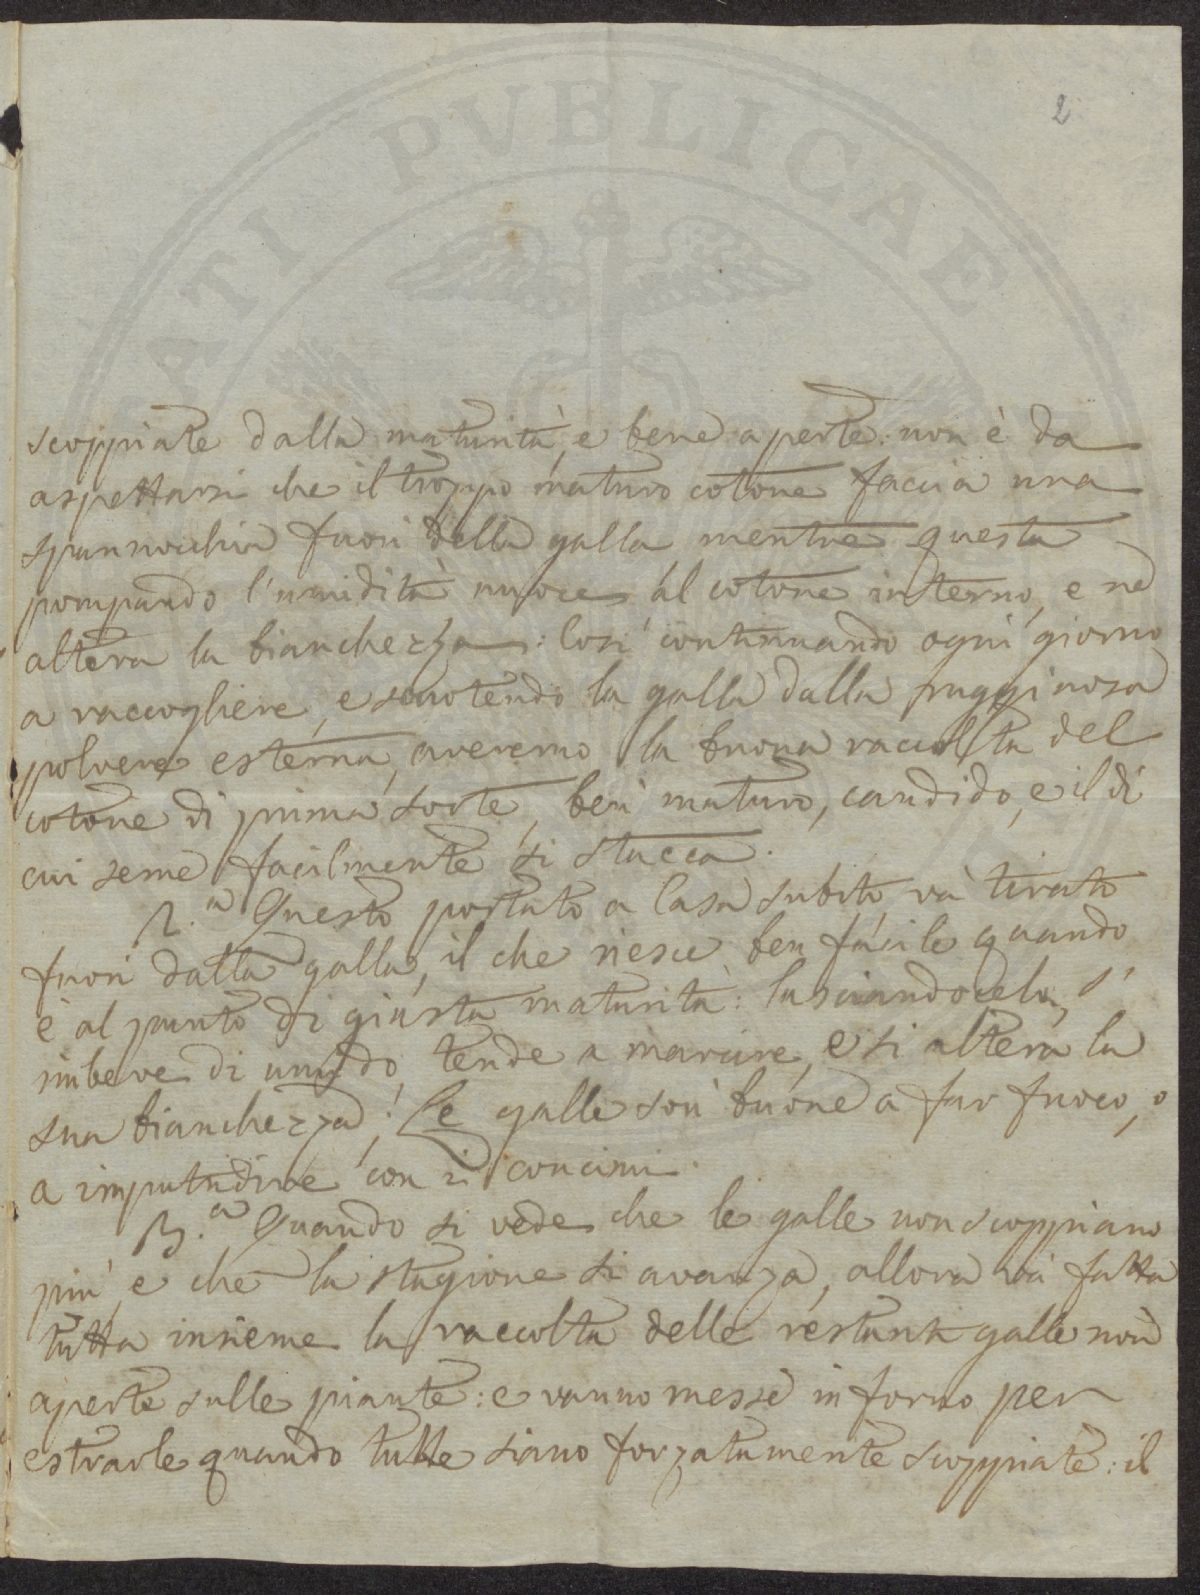 ATI PVBLICAE
2
scoppiate dalla maturità, e bene aperte: non è da
aspettarsi che il troppo maturo cotone faccia una
spannocchia fuori della galla mentre questa
pompando l'umidità nuoce al cotone interno, e ne
altera la bianchezza: Così continuando ogni giorno
a raccogliere, e scuotendo la galla dalla rugginosa
polvere esterna, averemo la buona raccolta del
cotone di prima sorte, ben maturo, candido, e il di
cui seme facilmente si stacca.
2.a Questo portato a Casa subito và tirato
fuori dalla galla, il che riesce ben facile quando
è al punto di giusta maturità: lasciandocelo, s'
imbeve di umido, tende a marcire, e si altera la
sua bianchezza; Le galle son buone a far fuoco, o
a imputridire con i concimi.
3.a Quando si vede che le galle non scoppiano
più, e che la stagione si avanza, allora và fatta
tutta insieme la raccolta delle restanti galle non
aperte sulle piante: e vanno messe in forno per
estrarle quando tutte siano forzatamente scoppiate: il